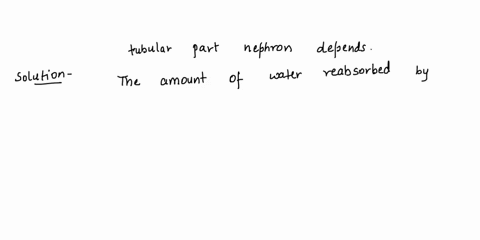 tubular part nephron depends.
Solution- The amount of water reabsorbed by